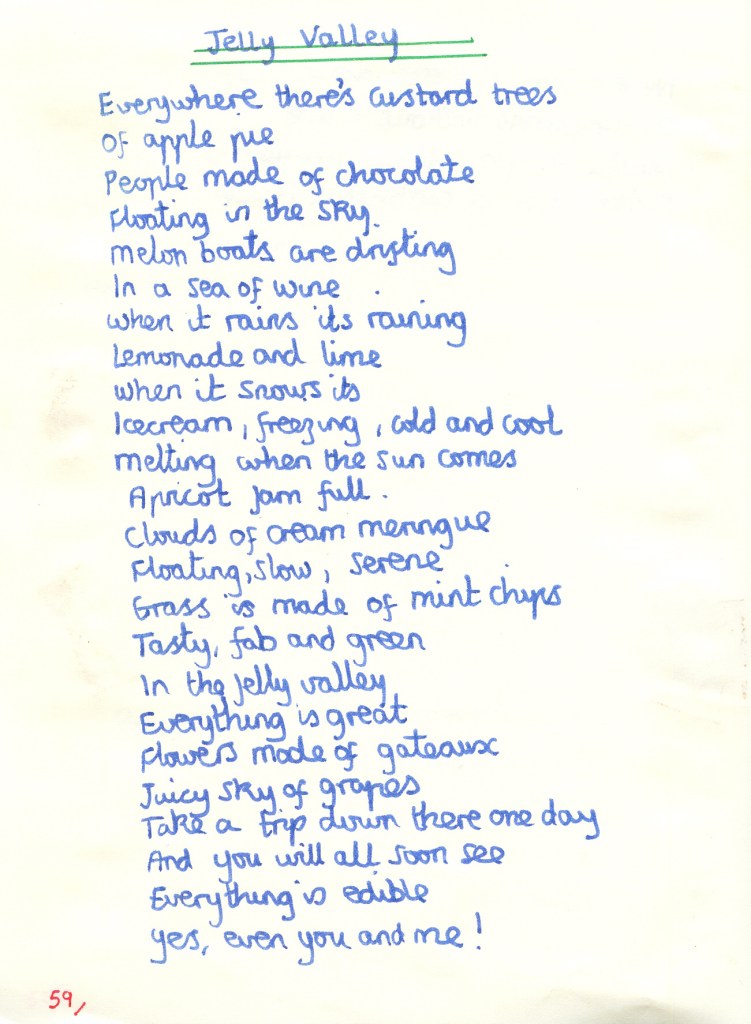 Jelly Valley
Everywhere there's custard trees
Of apple pie
People made of chocolate
Floating in the sky.
Melon boats are drifting
In a sea of wine
when it rains its raining
Lemonade and lime
when it snows its
Icecream, freezing, cold and cool
melting when the sun comes
Apricot jam full.
Clouds of cream meringue
Floating, slow, serene
Grass is made of mint chips
Tasty, fab and green
In the jelly valley
Everything is great
Flowers made of gateaux
Juicy sky of grapes
Take a trip down there one day
And you will all soon see
Everything is edible
yes, even you and me!
59,